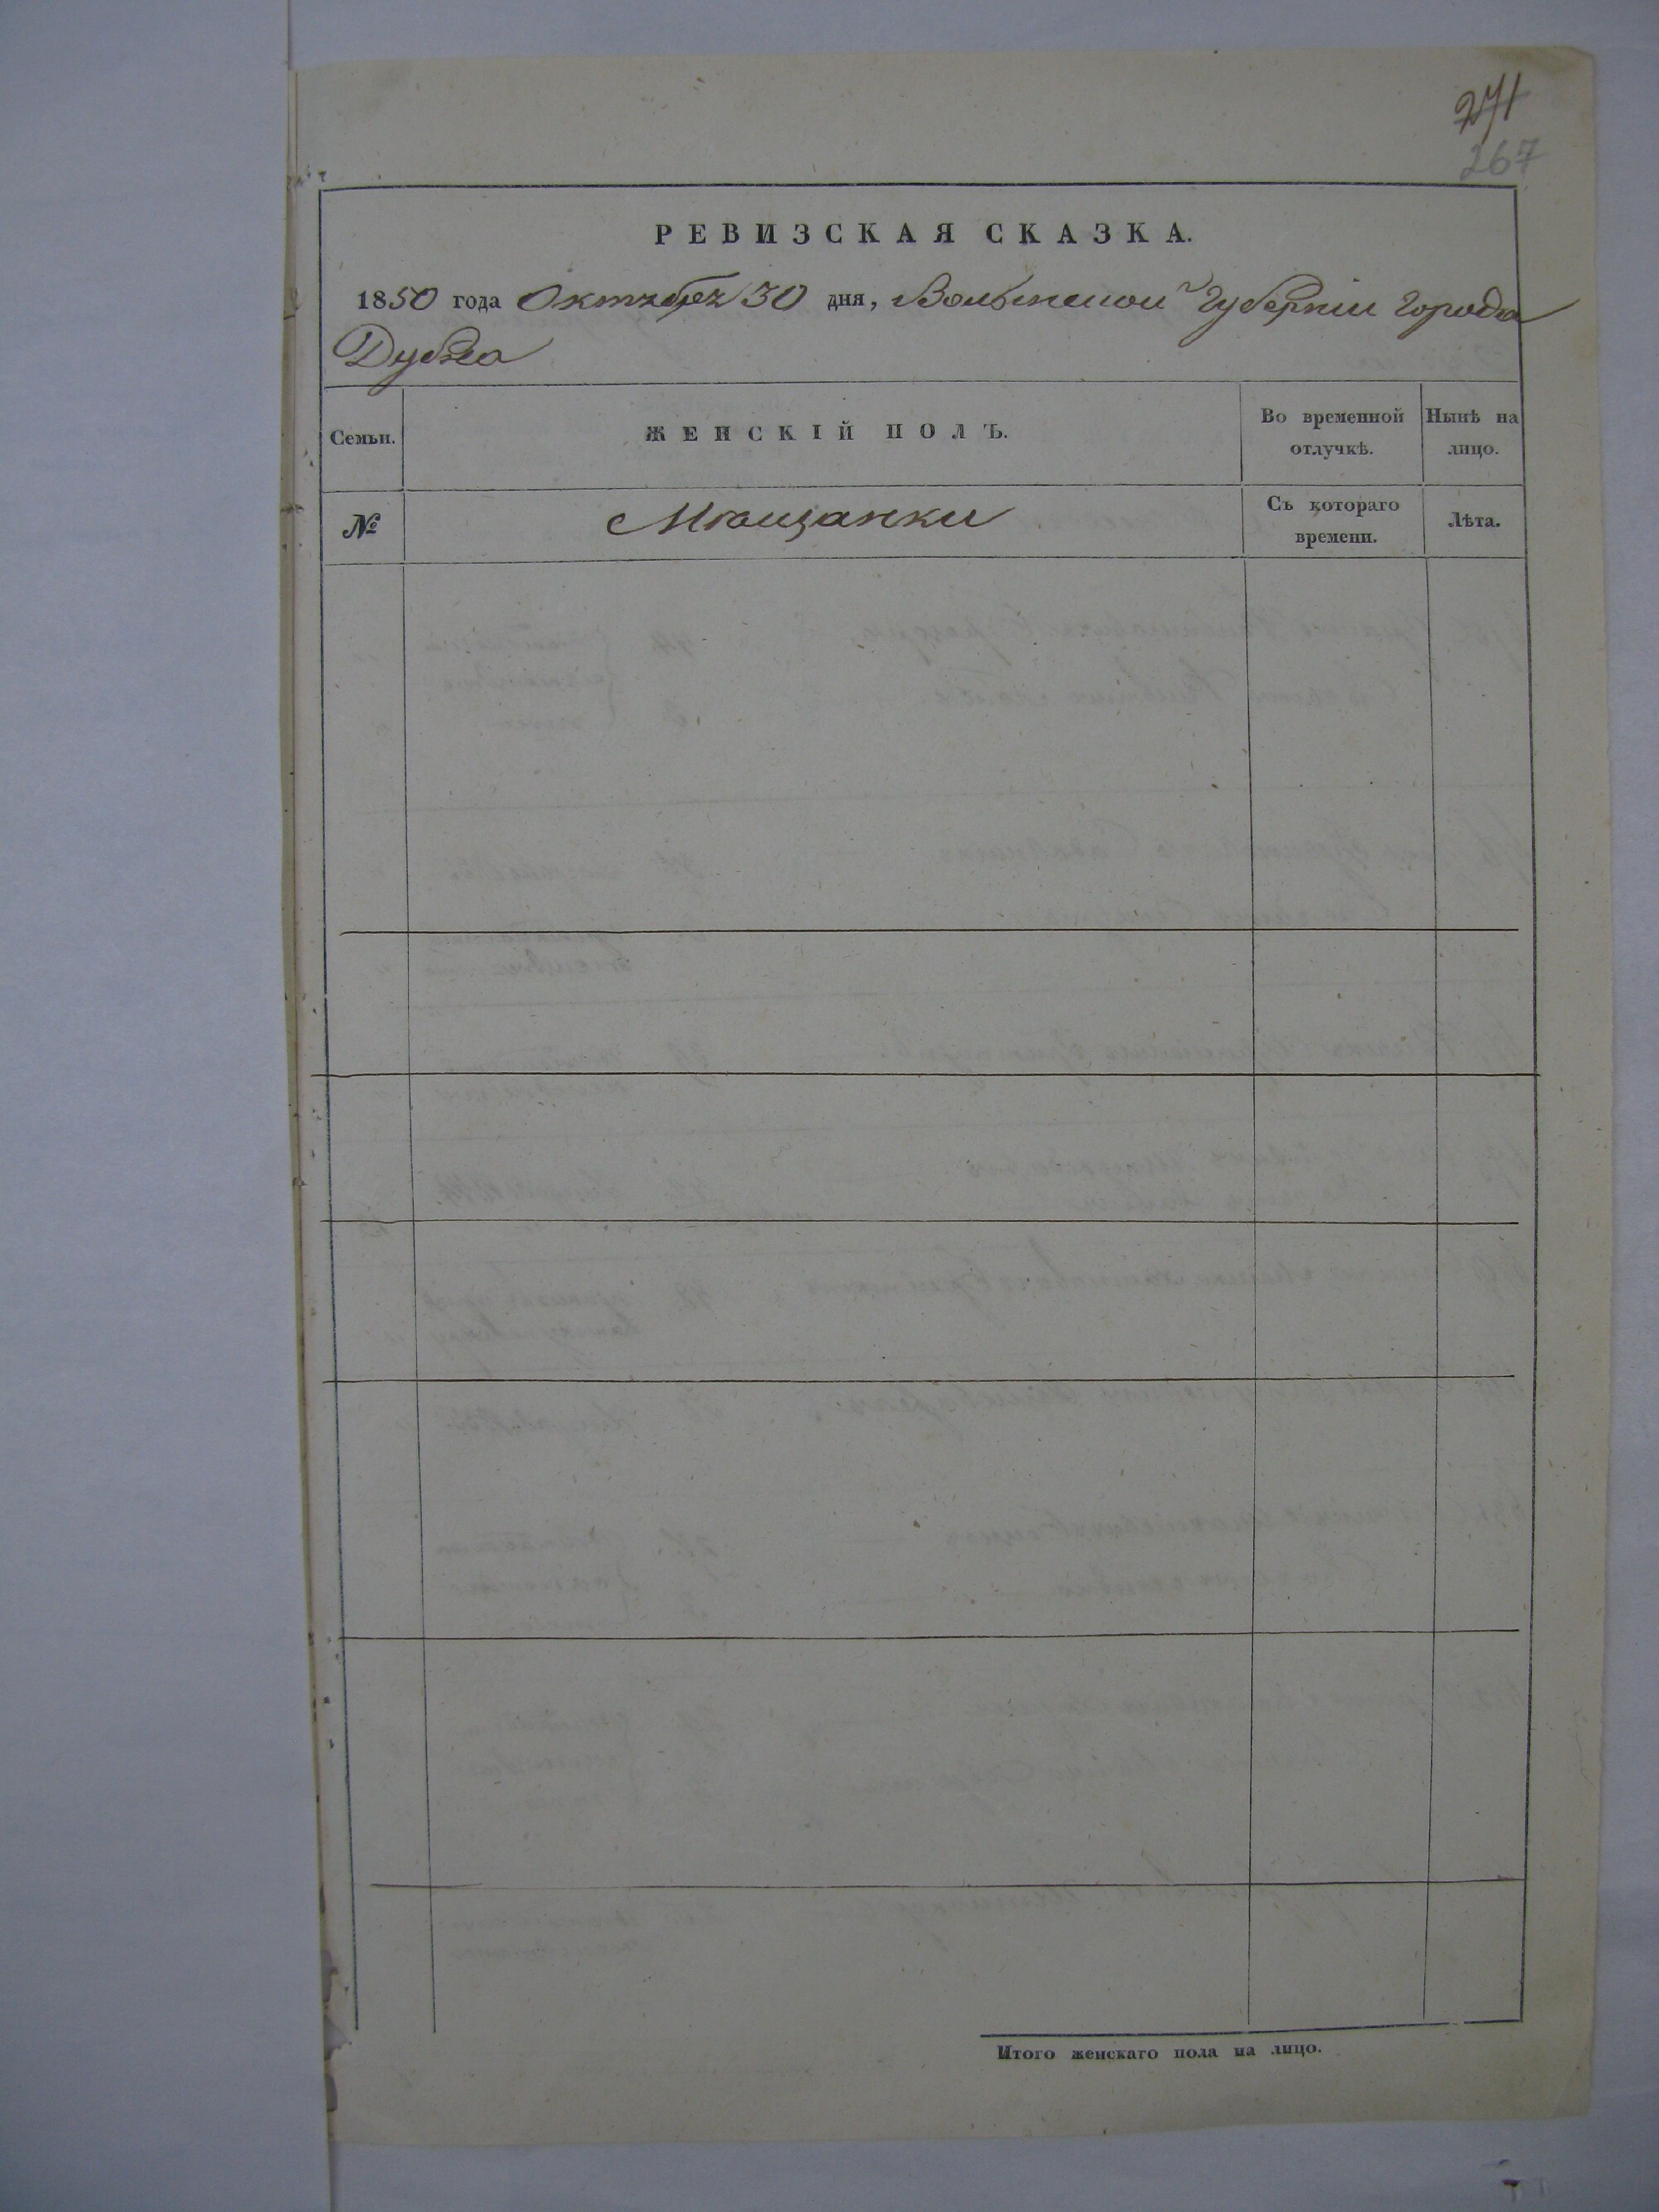 271
267
РЕВИЗСКАЯ СКАЗКА.
1850 года Октября 30 дня, Волынской Губерніи Города
Дубна
Семьи. ЖЕНСКІЙ ПОЛЪ. Во временной отлучкѣ. Нынѣ на лицо.
№ Мѣщанки Съ котораго времени. Лѣта.
Итого женскаго пола на лицо.